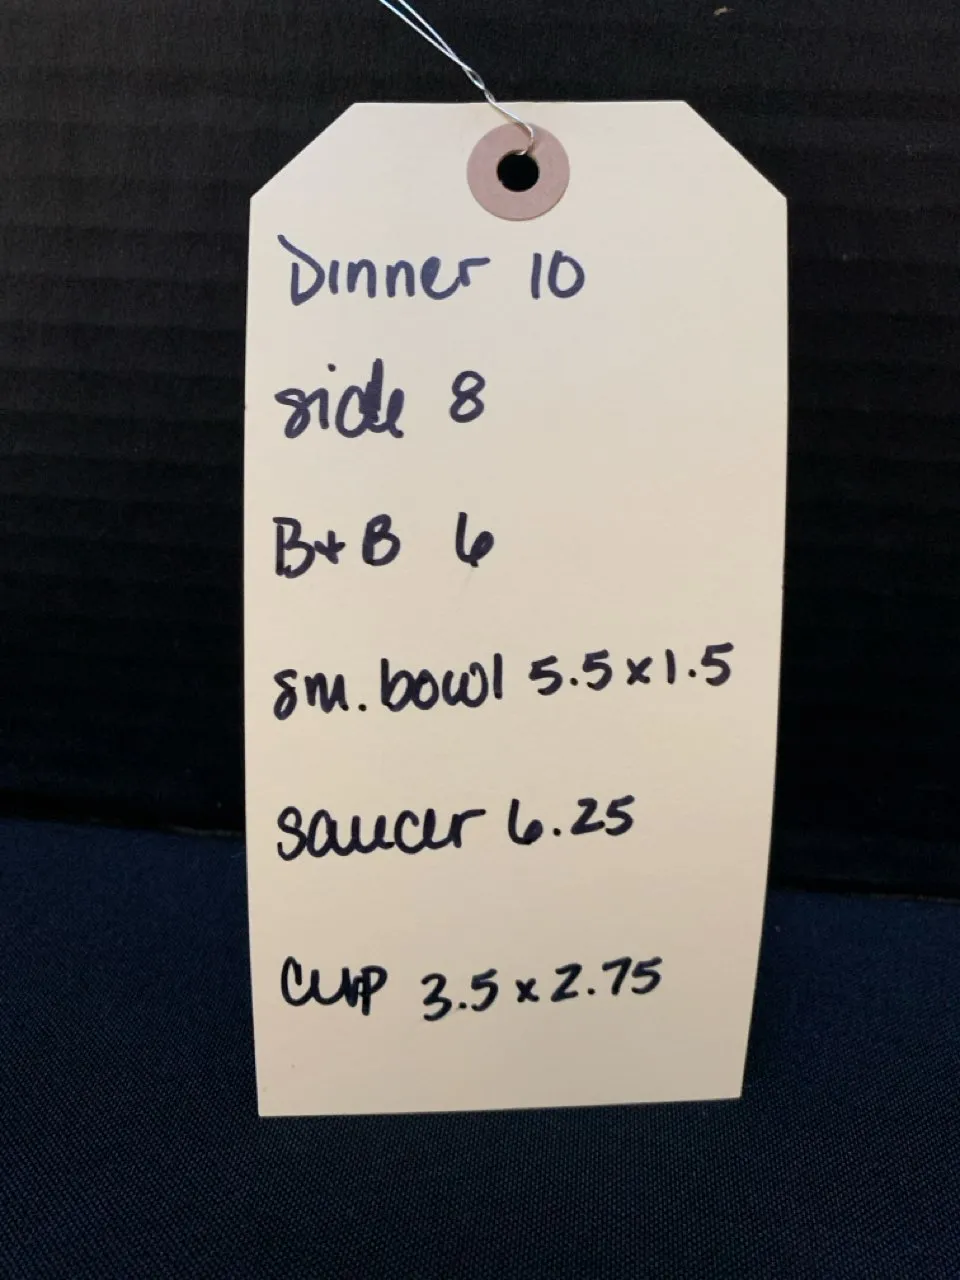 Dinner 10
side 8
B+B 6
sm. bowl 5.5x1.5
saucer 6.25
cup 3.5x2.75